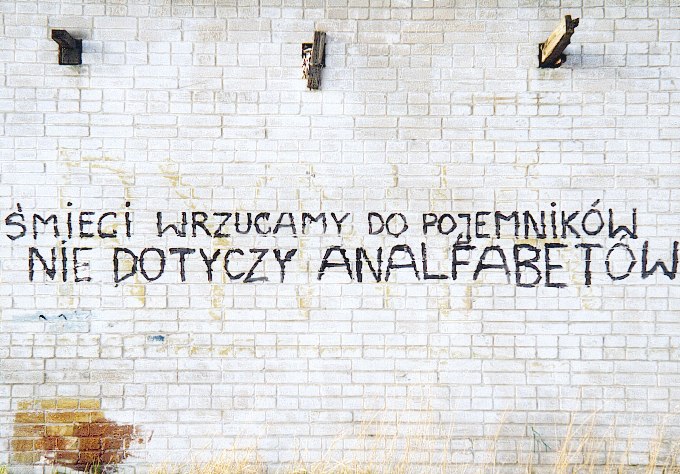 ŚMIECI WRZUCAMY DO POJEMNIKÓW
NIE DOTYCZY ANALFABETÓW